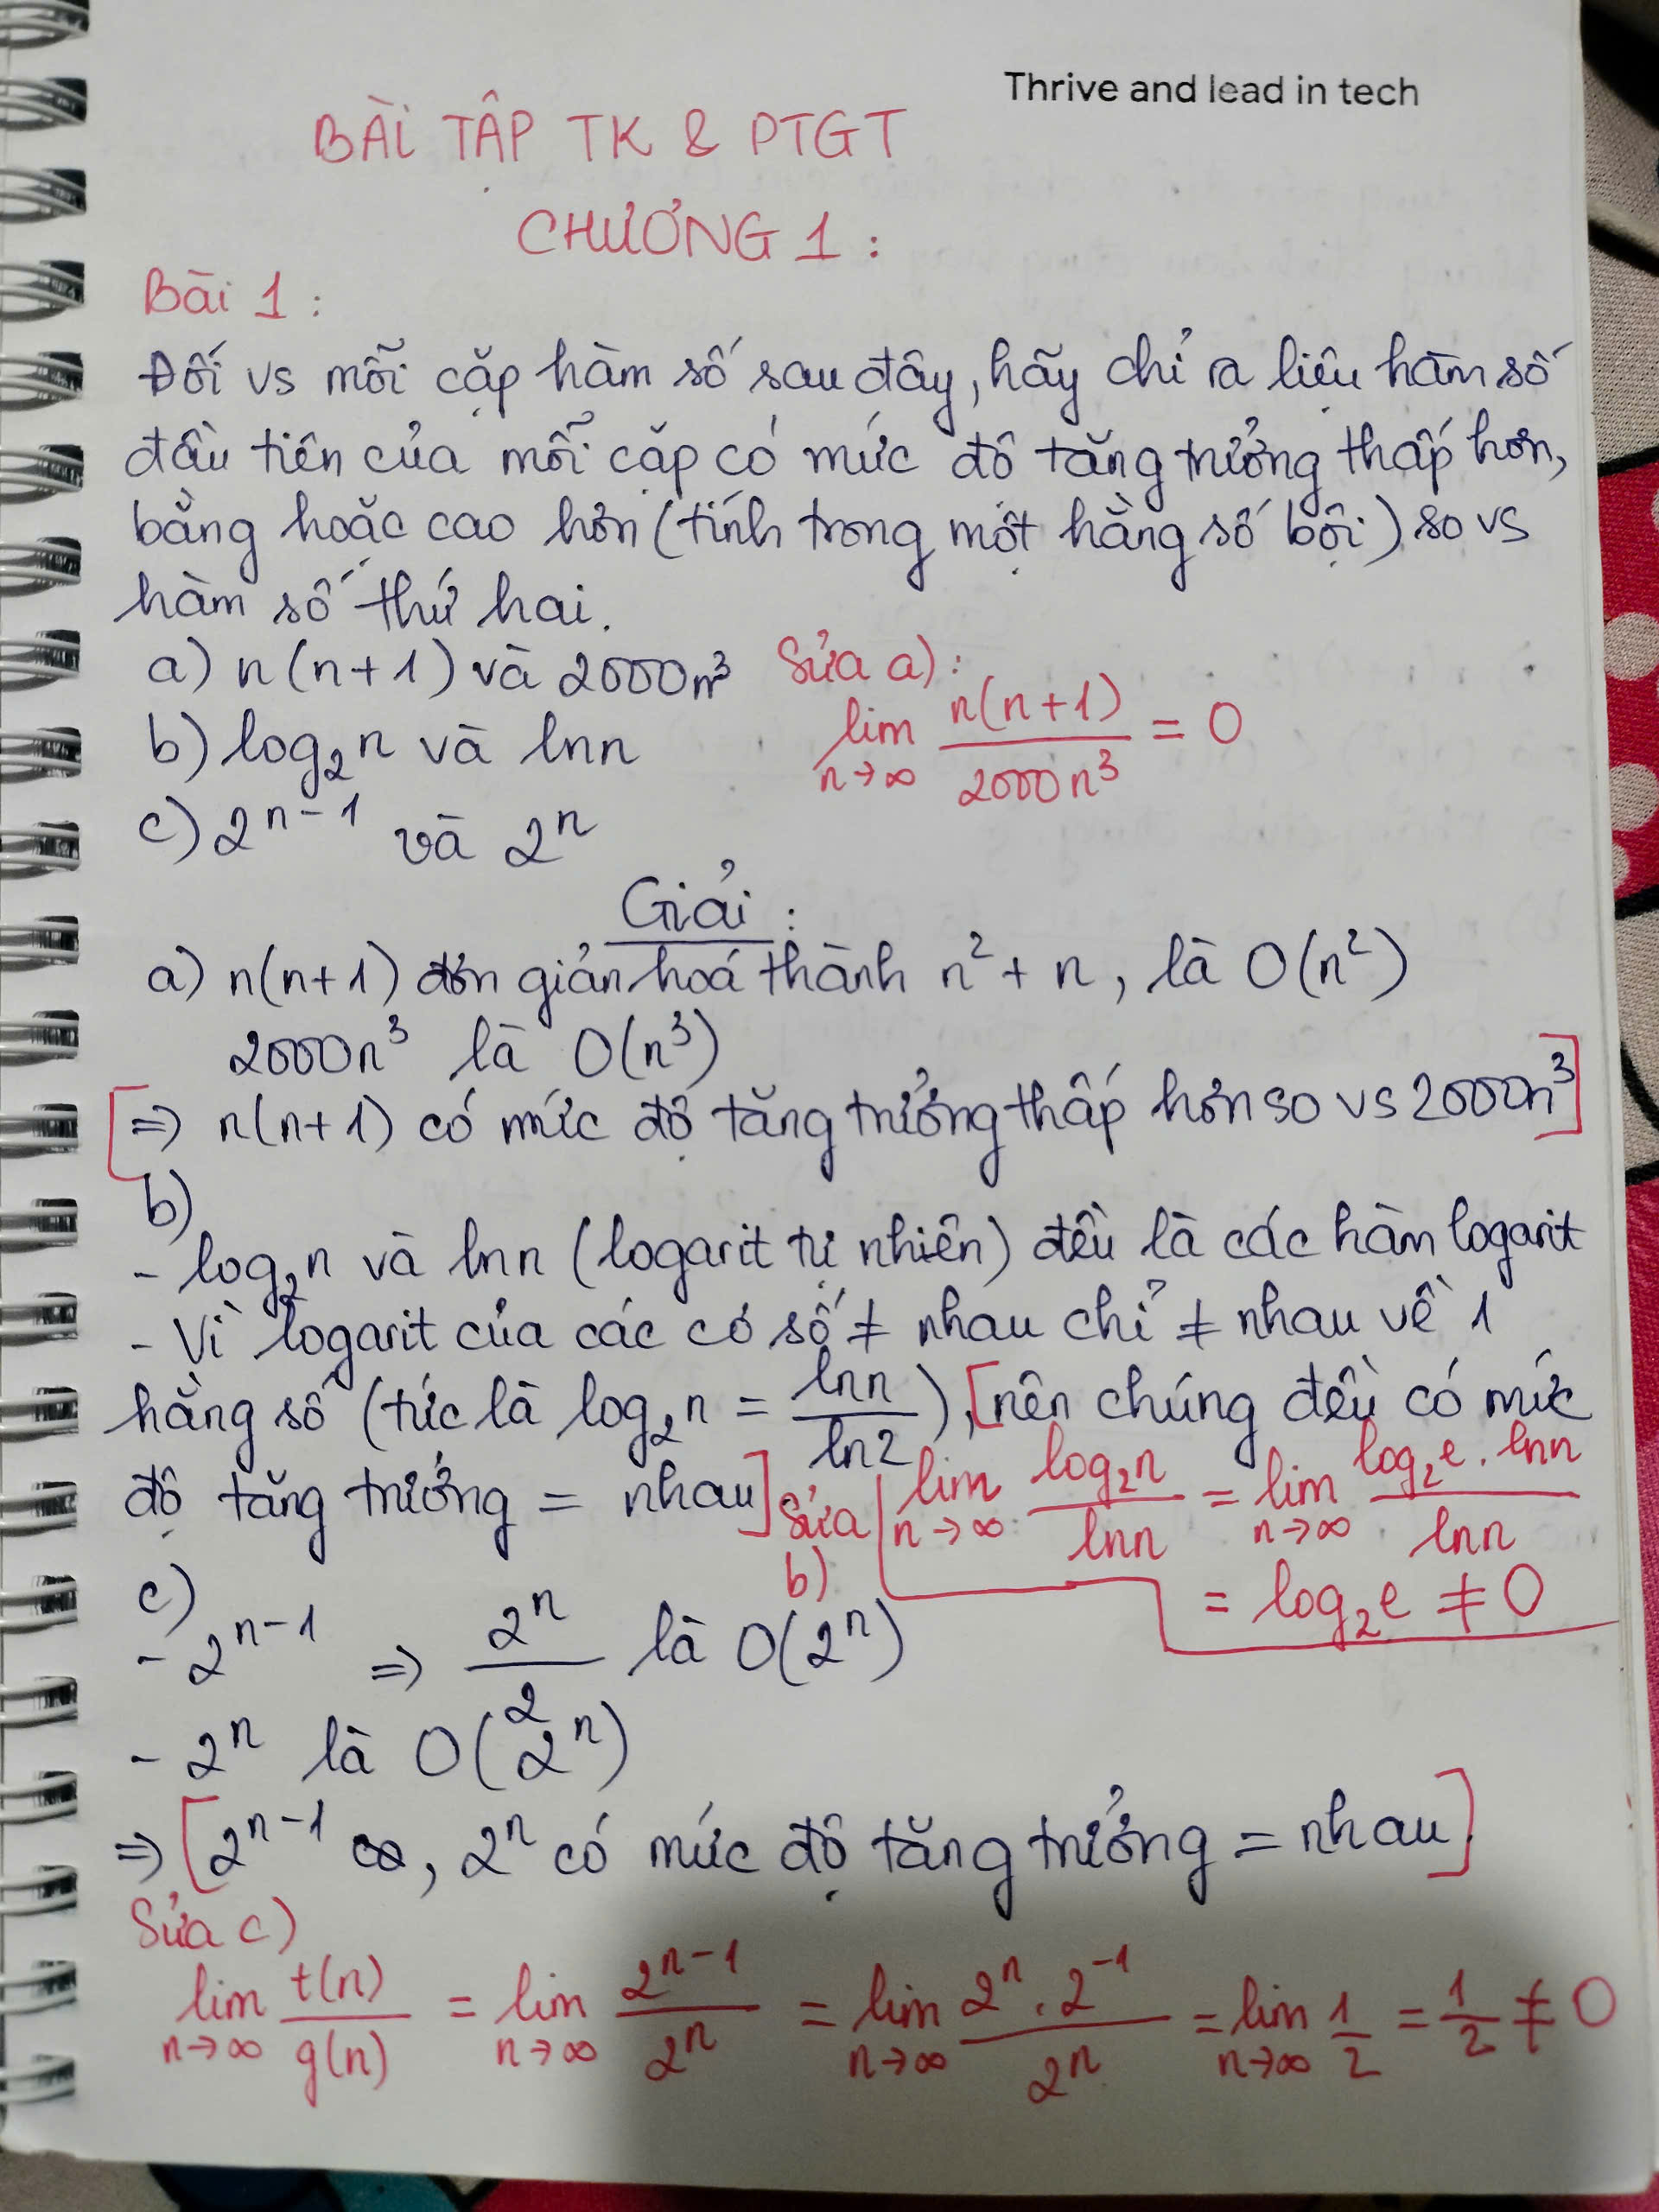 Thrive and lead in tech
BÀI TẬP TK & PTGT
CHƯƠNG 1 :
Bài 1 :
Đối vs mỗi cặp hàm số sau đây, hãy chỉ ra liệu hàm số
đầu tiên của mỗi cặp có mức độ tăng trưởng thấp hơn,
bằng hoặc cao hơn (tính trong một hằng số bội) so vs
hàm số thứ hai.
a) n(n+1) và 2000n³
Sửa a) :
lim n→∞ n(n+1) / 2000n³ = 0
b) log₂n và lnn
c) 2ⁿ⁻¹ và 2ⁿ
Giải :
a) n(n+1) đơn giản hoá thành n² + n, là O(n²)
2000n³ là O(n³)
[⇒ n(n+1) có mức độ tăng trưởng thấp hơn so vs 2000n³]
b)
- log₂n và lnn (logarit tự nhiên) đều là các hàm logarit
- Vì logarit của các cơ số ≠ nhau chỉ ≠ nhau về 1
hằng số (tức là log₂n = lnn / ln2), [nên chúng đều có mức
độ tăng trưởng = nhau].
Sửa b) lim n→∞ log₂n / lnn = lim n→∞ log₂e . lnn / lnn
= log₂e ≠ 0
c)
- 2ⁿ⁻¹ ⇒ 2ⁿ / 2 là O(2ⁿ)
- 2ⁿ là O(2ⁿ)
⇒ [2ⁿ⁻¹, 2ⁿ có mức độ tăng trưởng = nhau]
Sửa c)
lim n→∞ t(n) / g(n) = lim n→∞ 2ⁿ⁻¹ / 2ⁿ = lim n→∞ 2ⁿ . 2⁻¹ / 2ⁿ = lim n→∞ 1/2 = 1/2 ≠ 0